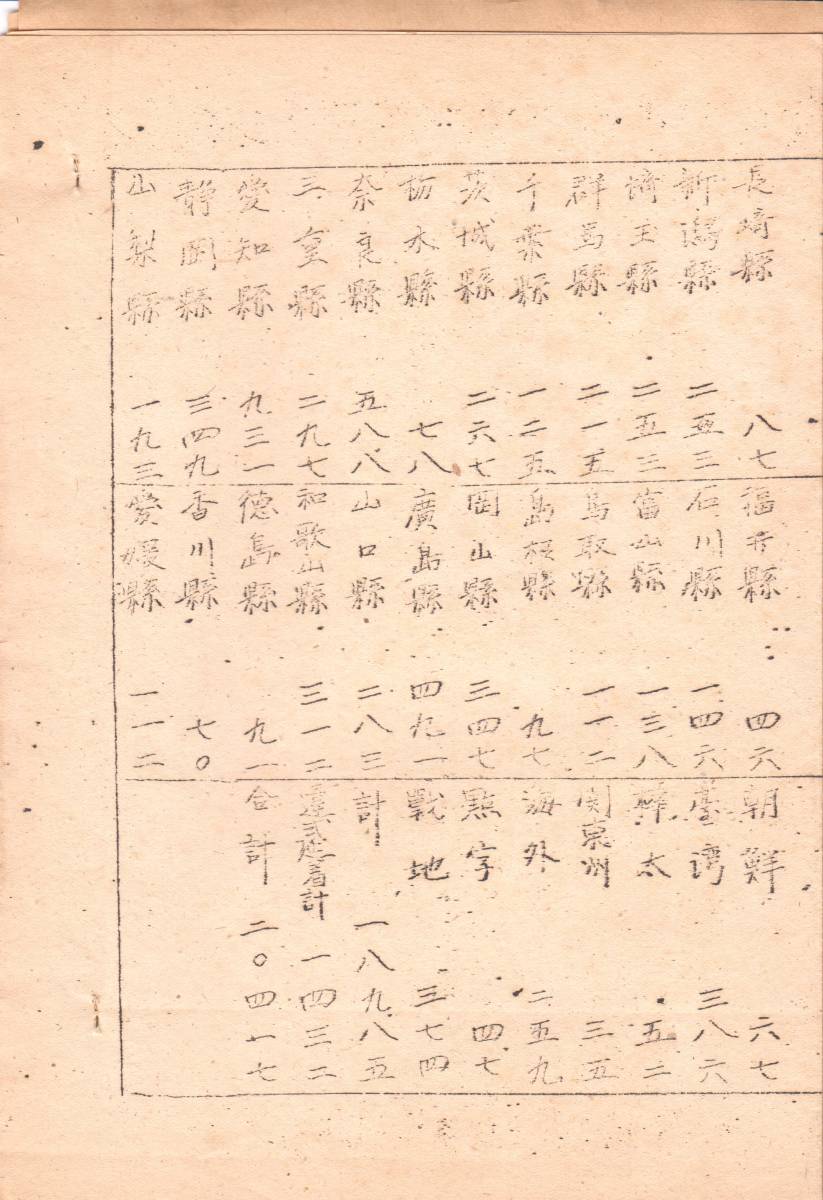 長崎縣 八七
新潟縣 二五三
埼玉縣 二五三
群馬縣 二一五
千葉縣 一二五
茨城縣 二六七
栃木縣 七八
奈良縣 五八八
三重縣 二九七
愛知縣 九三一
静岡縣 三四九
山梨縣 一九三
福井縣 四六
石川縣 一四六
富山縣 一三八
鳥取縣 一一二
島根縣 九七
岡山縣 三四七
廣島縣 四九一
山口縣 二八三
和歌山縣 三一二
徳島縣 九一
香川縣 七〇
愛媛縣 一一二
朝鮮 六七
臺湾 三八六
樺太 五二
関東州 三五
海外 二五九
點字 四七
戰地 三七四
計 一八九八五
違式延着計 一四三二
合計 二〇四一七